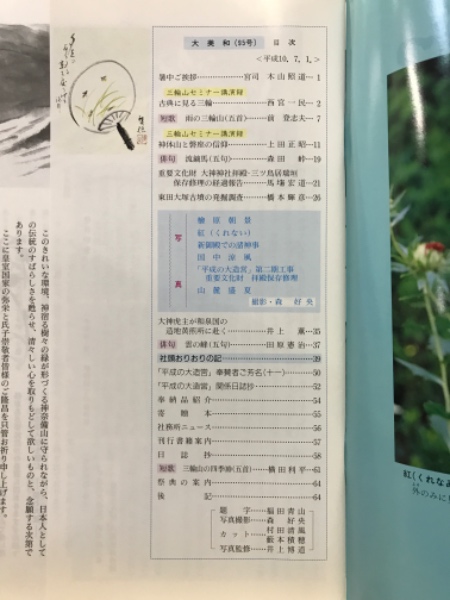 大美和(95号) 目次
<平成10.7.1.>
暑中ご挨拶…………宮司 木山照道…1
三輪山セミナー講演録
古典に見る三輪…………西宮一民…2
短歌 雨の三輪山(五首)……前 登志夫…7
三輪山セミナー講演録
神体山と磐座の信仰………上田正昭…11
俳句 流鏑馬(五句)………森田 峠…19
重要文化財 大神神社拝殿・三ツ鳥居瑞垣
保存修理の経過報告……馬場宏道…21
東田大塚古墳の発掘調査……橋本輝彦…26
写真
檜原朝景
紅(くれない)
新御殿での清神事
国中涼風
「平成の大造営」第二期工事
重要文化財 拝殿保存修理
山麓盛夏
撮影・森 好央
大神虎主が陶器国の
造地黄所に赴く…………井上 薫…35
俳句 雲の峰(五句)………田原憲治…37
社頭おりおりの記…………39
「平成の大造営」奉賛者ご芳名(十一)……50
「平成の大造営」関係日誌抄…………52
奉納品紹介…………54
寄贈本…………55
社務所ニュース…………56
刊行書籍案内…………57
日誌抄…………58
短歌 三輪山の四季締(五首)……横田利平…61
祭典の案内…………64
後記…………64
題字……福田青山
写真撮影……森 好央
カット……村田清風
藪本積穂
写真監修……井上博道
このきれいな環境、神宿る樹々の緑が形づくる神奈備山に守られながら、日本人として
の伝統のすばらしさを甦らせ、清々しい心を取りもどして欲しいものと、念願する次第で
あります。
ここに皇室国家の弥栄と氏子崇敬者皆様のご隆昌を只管お祈り申し上げます。
紅(くれなゐ
外のみに